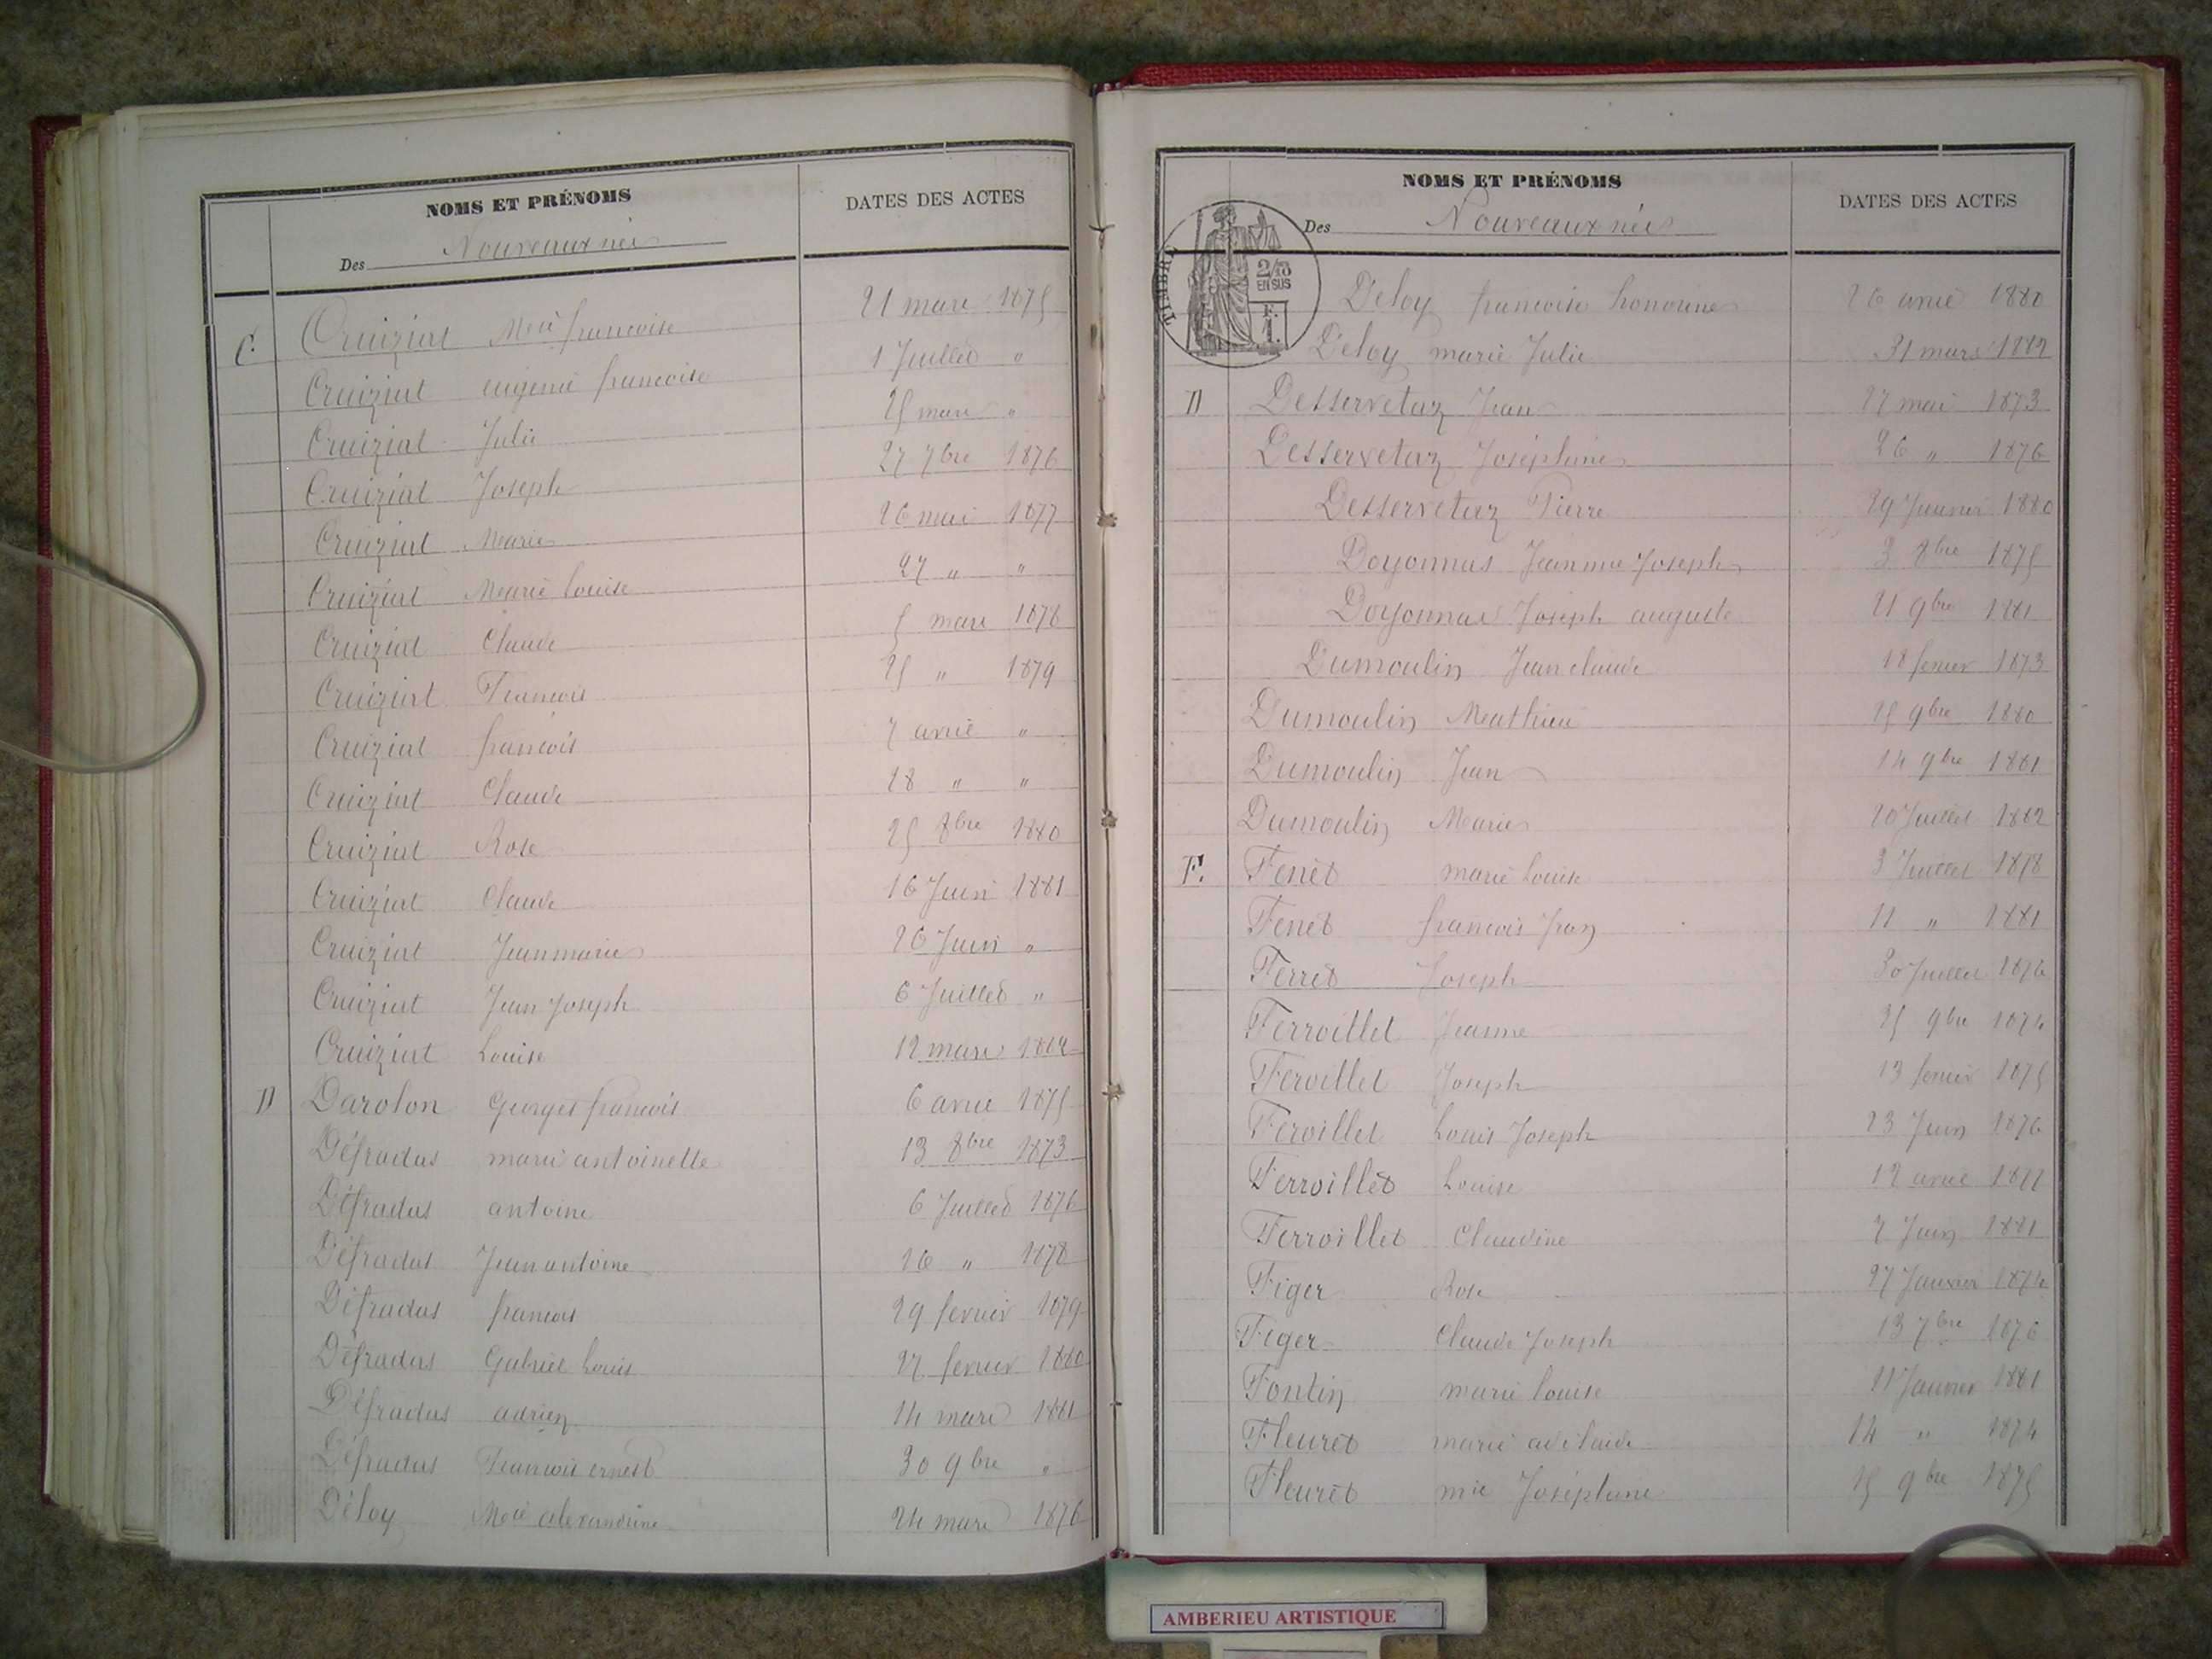 NOMS ET PRÉNOMS
DATES DES ACTES
Des Nouveaux nés
C. Cruiziat Mie francoise 21 mars 1875
Cruiziat eugenie francoise 1 Juillet "
Cruiziat Julie 25 mars "
Cruiziat Joseph 27 7bre 1876
Cruiziat Marie 26 mai 1877
Cruiziat Marie louise 27 " "
Cruiziat Claude 5 mars 1878
Cruiziat Francois 25 " 1879
Cruiziat francois 7 avril "
Cruiziat Claude 28 " "
Cruiziat Rose 25 8bre 1880
Cruiziat Claude 16 Juin 1881
Cruiziat Jean marie 26 Juin "
Cruiziat Jean Joseph 6 Juillet "
Cruiziat Louise 12 mars 1882
D Darolon Georges francois 6 avril 1875
Défradas marie antoinette 13 8bre 1873
Défradas antoine 6 Juillet 1876
Défradas Jean antoine 16 " 1878
Défradas francois 29 fevrier 1879
Défradas Gabriel Louis 27 fevrier 1880
Défradas adrien 14 mars 1881
Défradas Francois ernest 30 9bre "
Déloy Mie alexandrine 24 mars 1876
NOMS ET PRÉNOMS
DATES DES ACTES
Des Nouveaux nés
TIMBRE
2/10
EN SUS
F.
1.
Deloy francoise honorine 26 avril 1880
Deloy marie Julie 31 mars 1882
D Desservetaz Jean 27 mai 1873
Desservetaz Joséphine 26 " 1876
Desservetaz Pierre 29 Janvier 1880
Doyonnas Jean mie Joseph 3 8bre 1875
Doyonnas Joseph auguste 21 9bre 1881
Dumoulin Jean claude 18 fevrier 1873
Dumoulin Mathieu 25 9bre 1880
Dumoulin Jean 14 9bre 1881
Dumoulin Marie 20 Juillet 1882
F. Fenet marie Louise 3 Juillet 1878
Fenet francois Jean 11 " 1881
Ferret Joseph 30 Juillet 1876
Ferroillet Jeanne 25 9bre 1874
Feroillet Joseph 13 fevrier 1875
Feroillet Louis Joseph 23 Juin 1876
Ferroillet Louise 12 avril 1877
Ferroillet Claudine 7 Juin 1881
Figer Rose 27 Janvier 1874
Figer Claude Joseph 13 7bre 1876
Fontin marie louise 11 Janvier 1881
Fleuret marie adélaide 14 " 1874
Fleuret mie Joséphine 15 9bre 1875
AMBERIEU ARTISTIQUE